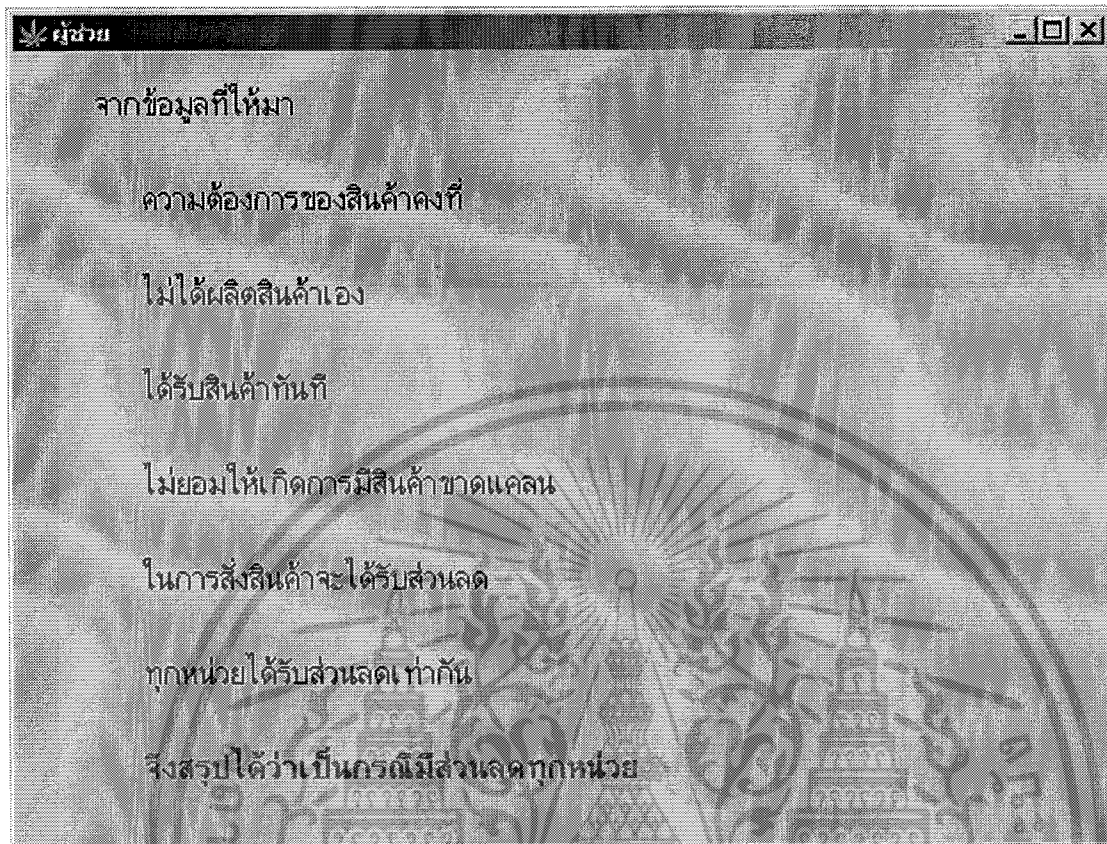 ผู้ช่วย
จากข้อมูลที่ให้มา
ความต้องการของสินค้าคงที่
ไม่ได้ผลิตสินค้าเอง
ได้รับสินค้าทันที
ไม่ยอมให้เกิดการมีสินค้าขาดแคลน
ในการสั่งสินค้าจะได้รับส่วนลด
ทุกหน่วยได้รับส่วนลดเท่ากัน
จึงสรุปได้ว่าเป็นกรณีมีส่วนลดทุกหน่วย